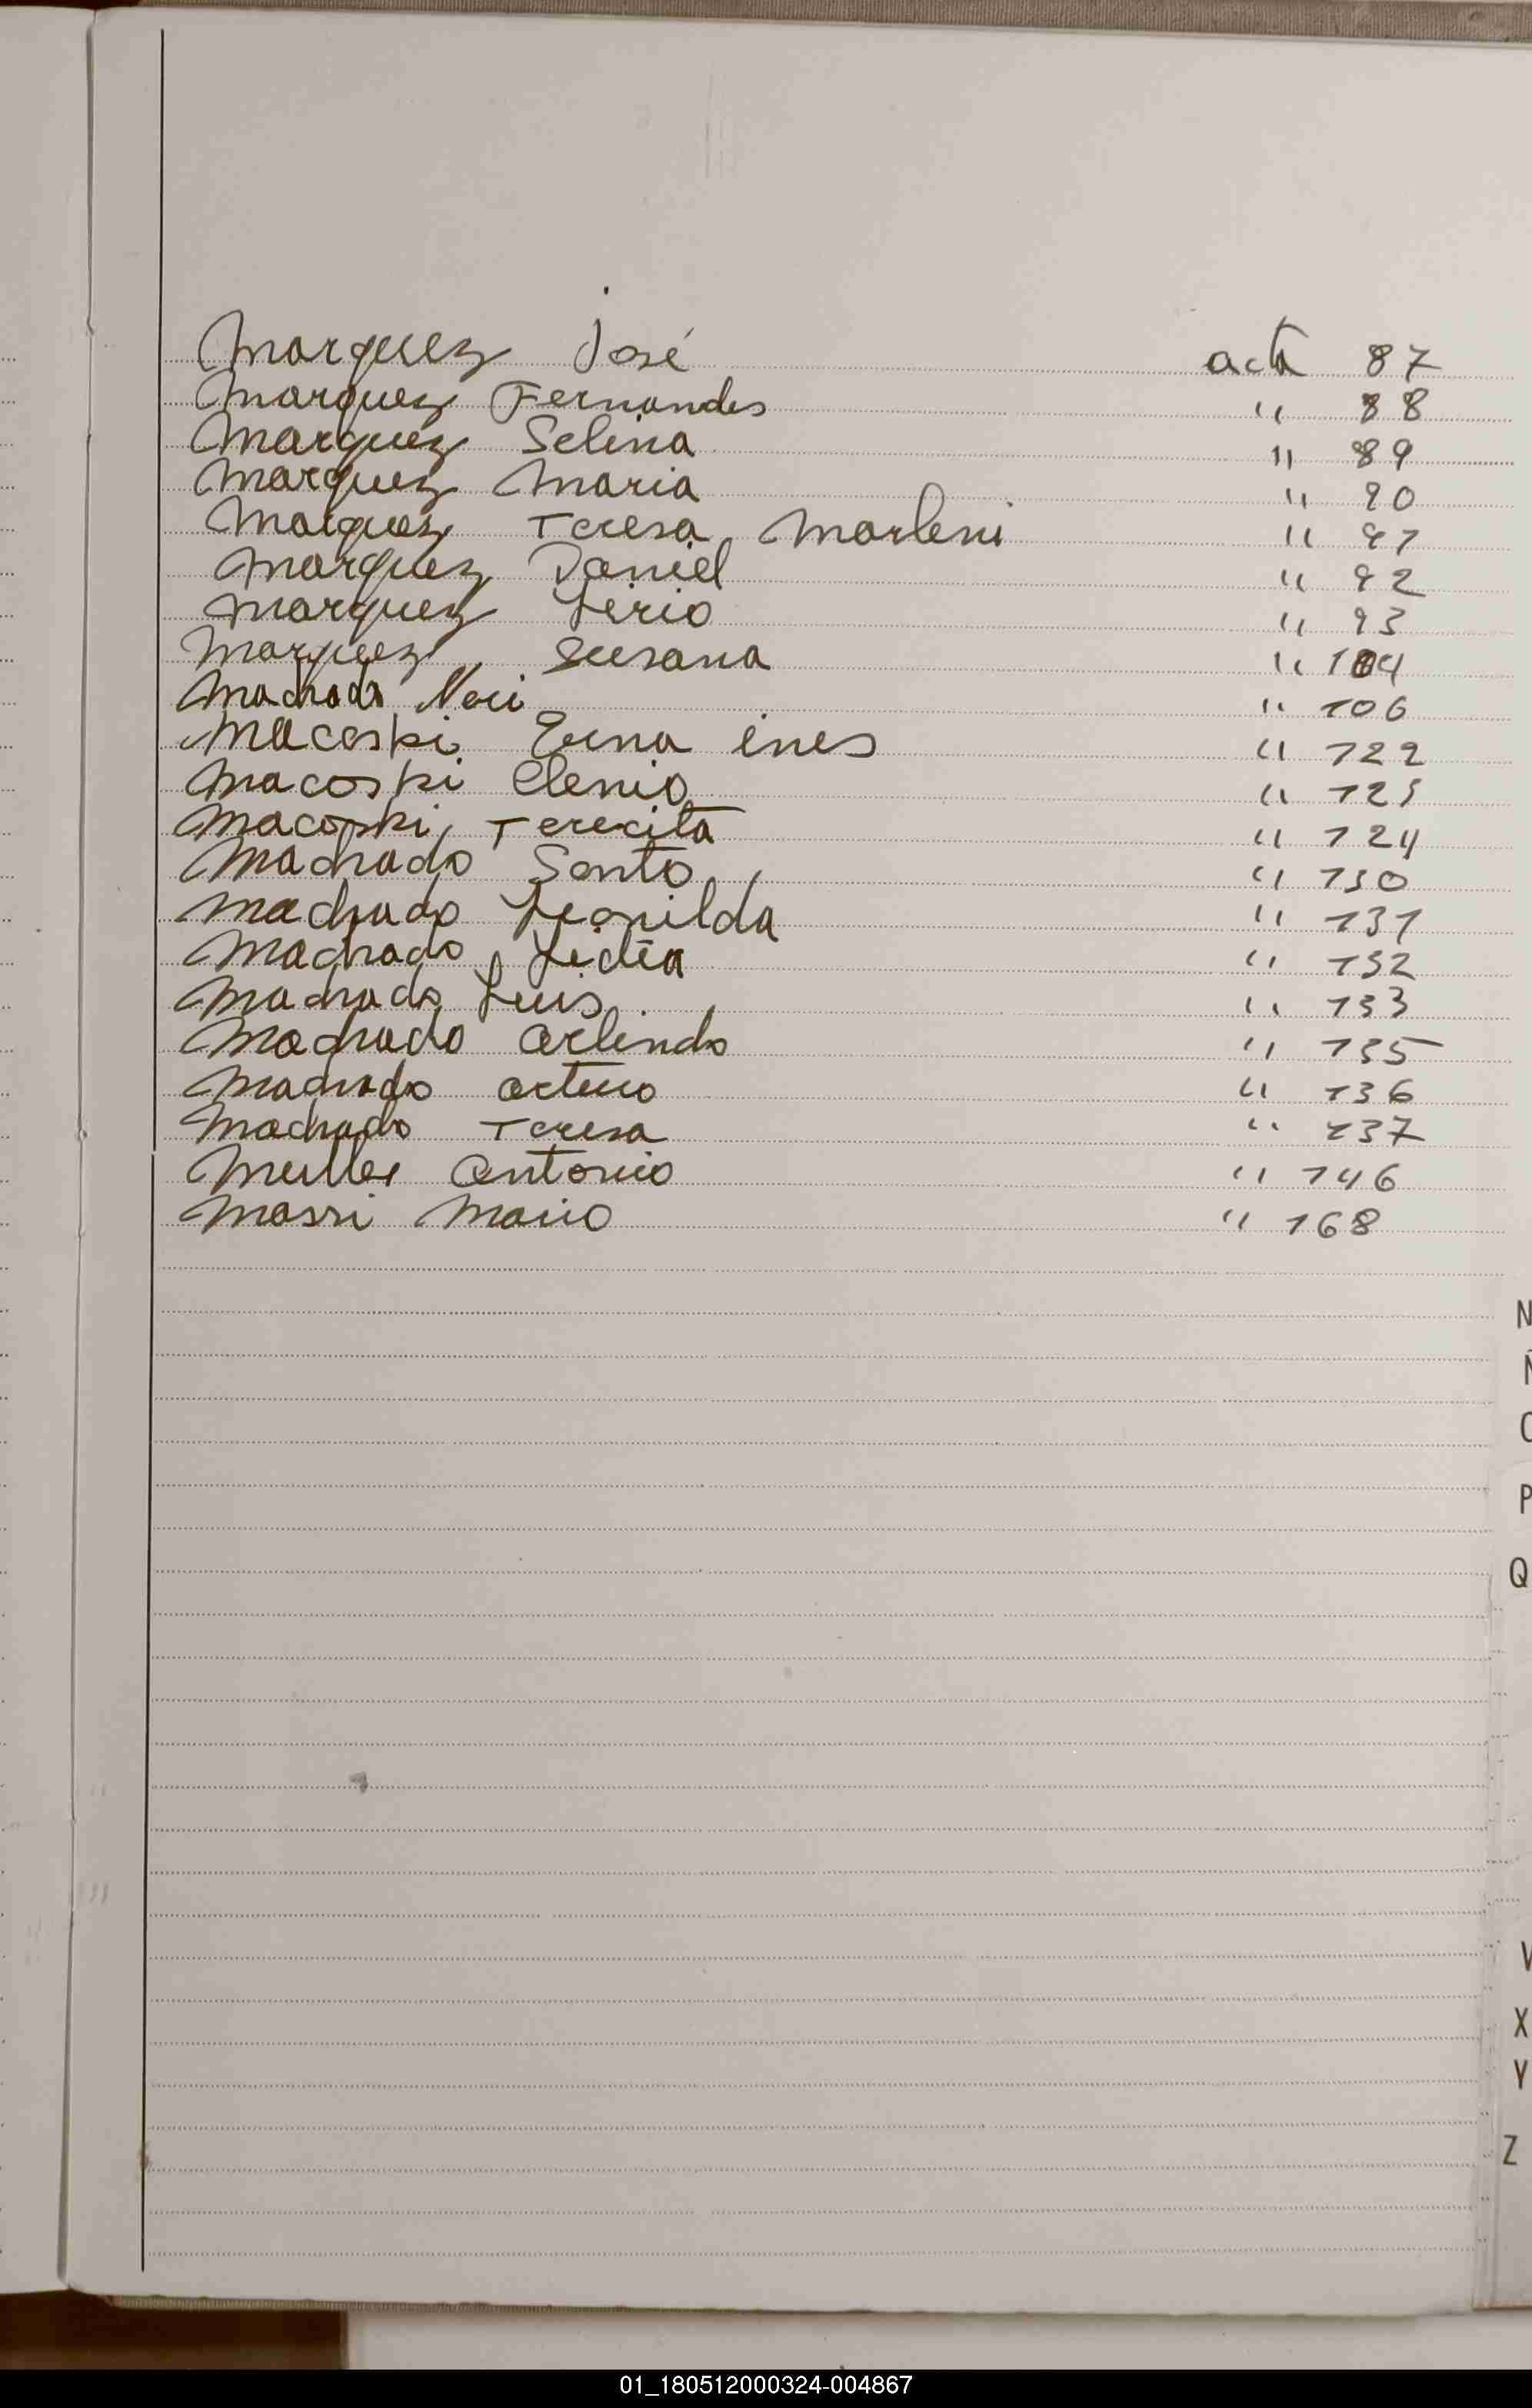 Marquez José acta 87
Marquez Fernandes " 88
Marquez Selina " 89
Marquez Maria " 90
Marquez Teresa Marleni " 91
Marquez Daniel " 92
Marquez Lirio " 93
Marquez Susana " 104
Machado Neri " 106
Macoski Erna ines " 122
Macoski Clenio " 123
Macoski Terecita " 124
Machado Santo " 130
Machado Leonilda " 131
Machado Lidia " 132
Machado Luis " 133
Machado Arlindo " 135
Machado Arturo " 136
Machado Teresa " 137
Muller Antonio " 146
Massi Mario " 168
N
Ñ
O
P
Q
V
X
Y
Z
01_180512000324-004867